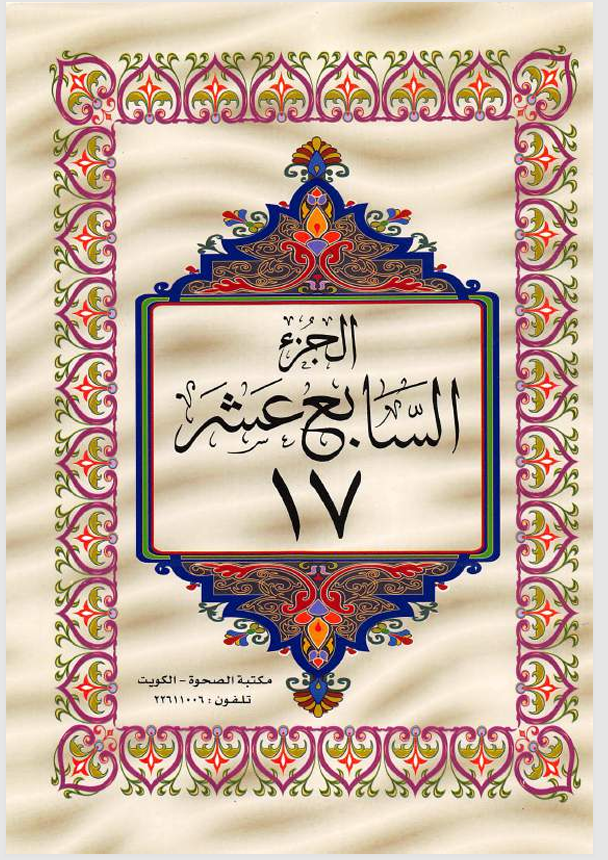 الجُزء
السَّابع عَشَر
١٧
مكتبة الصحوة - الكويت
تلفون : ٢٢٦١١٠٠٦